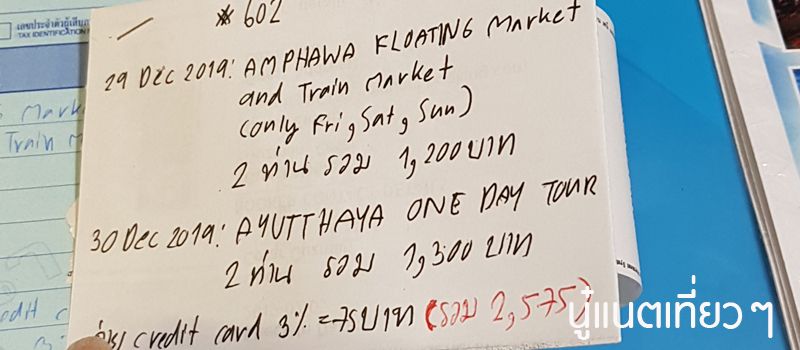 เลขประจำตัวผู้เสียภ
TAX IDENTIFICATION
* 602
29 Dec 2019: AMPHAWA FLOATING Market
and Train Market
(only Fri, Sat, Sun)
2 ท่าน รวม 1,200 บาท
30 Dec 2019: AYUTTHAYA ONE DAY TOUR
2 ท่าน รวม 1,300 บาท
credit card 3% = 75 บาท (รวม 2,575)
Train M
นู๋แนตเที่ยวๆ